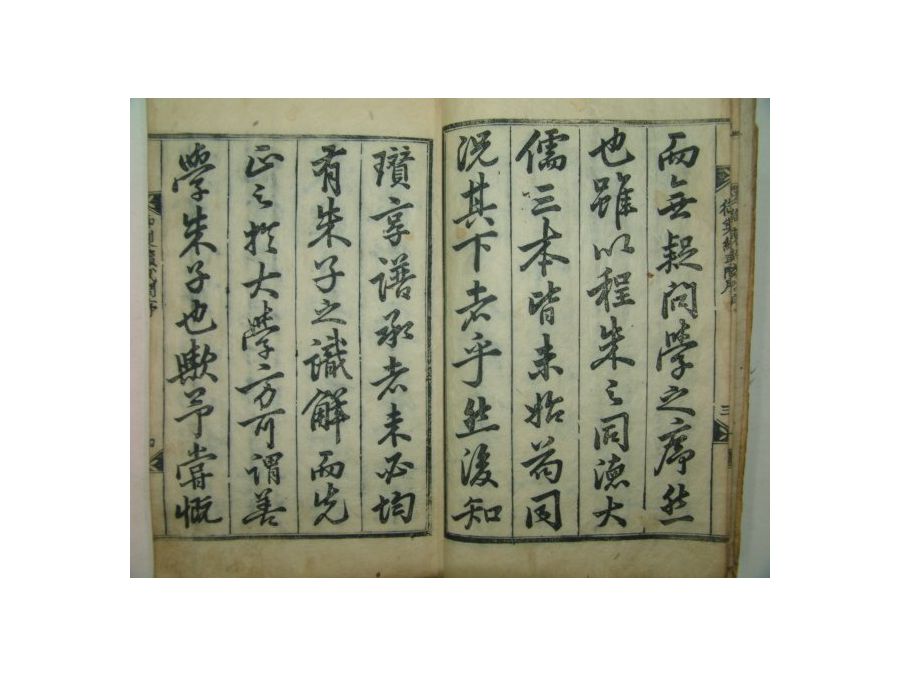 而無疑問學之序然
也雖以程朱之同德大
儒三本皆未始爲同
況其下者乎然後知
瓚享譜承者未必均
有朱子之識解而先
正之於大學方可謂善
學朱子也歟予嘗慨